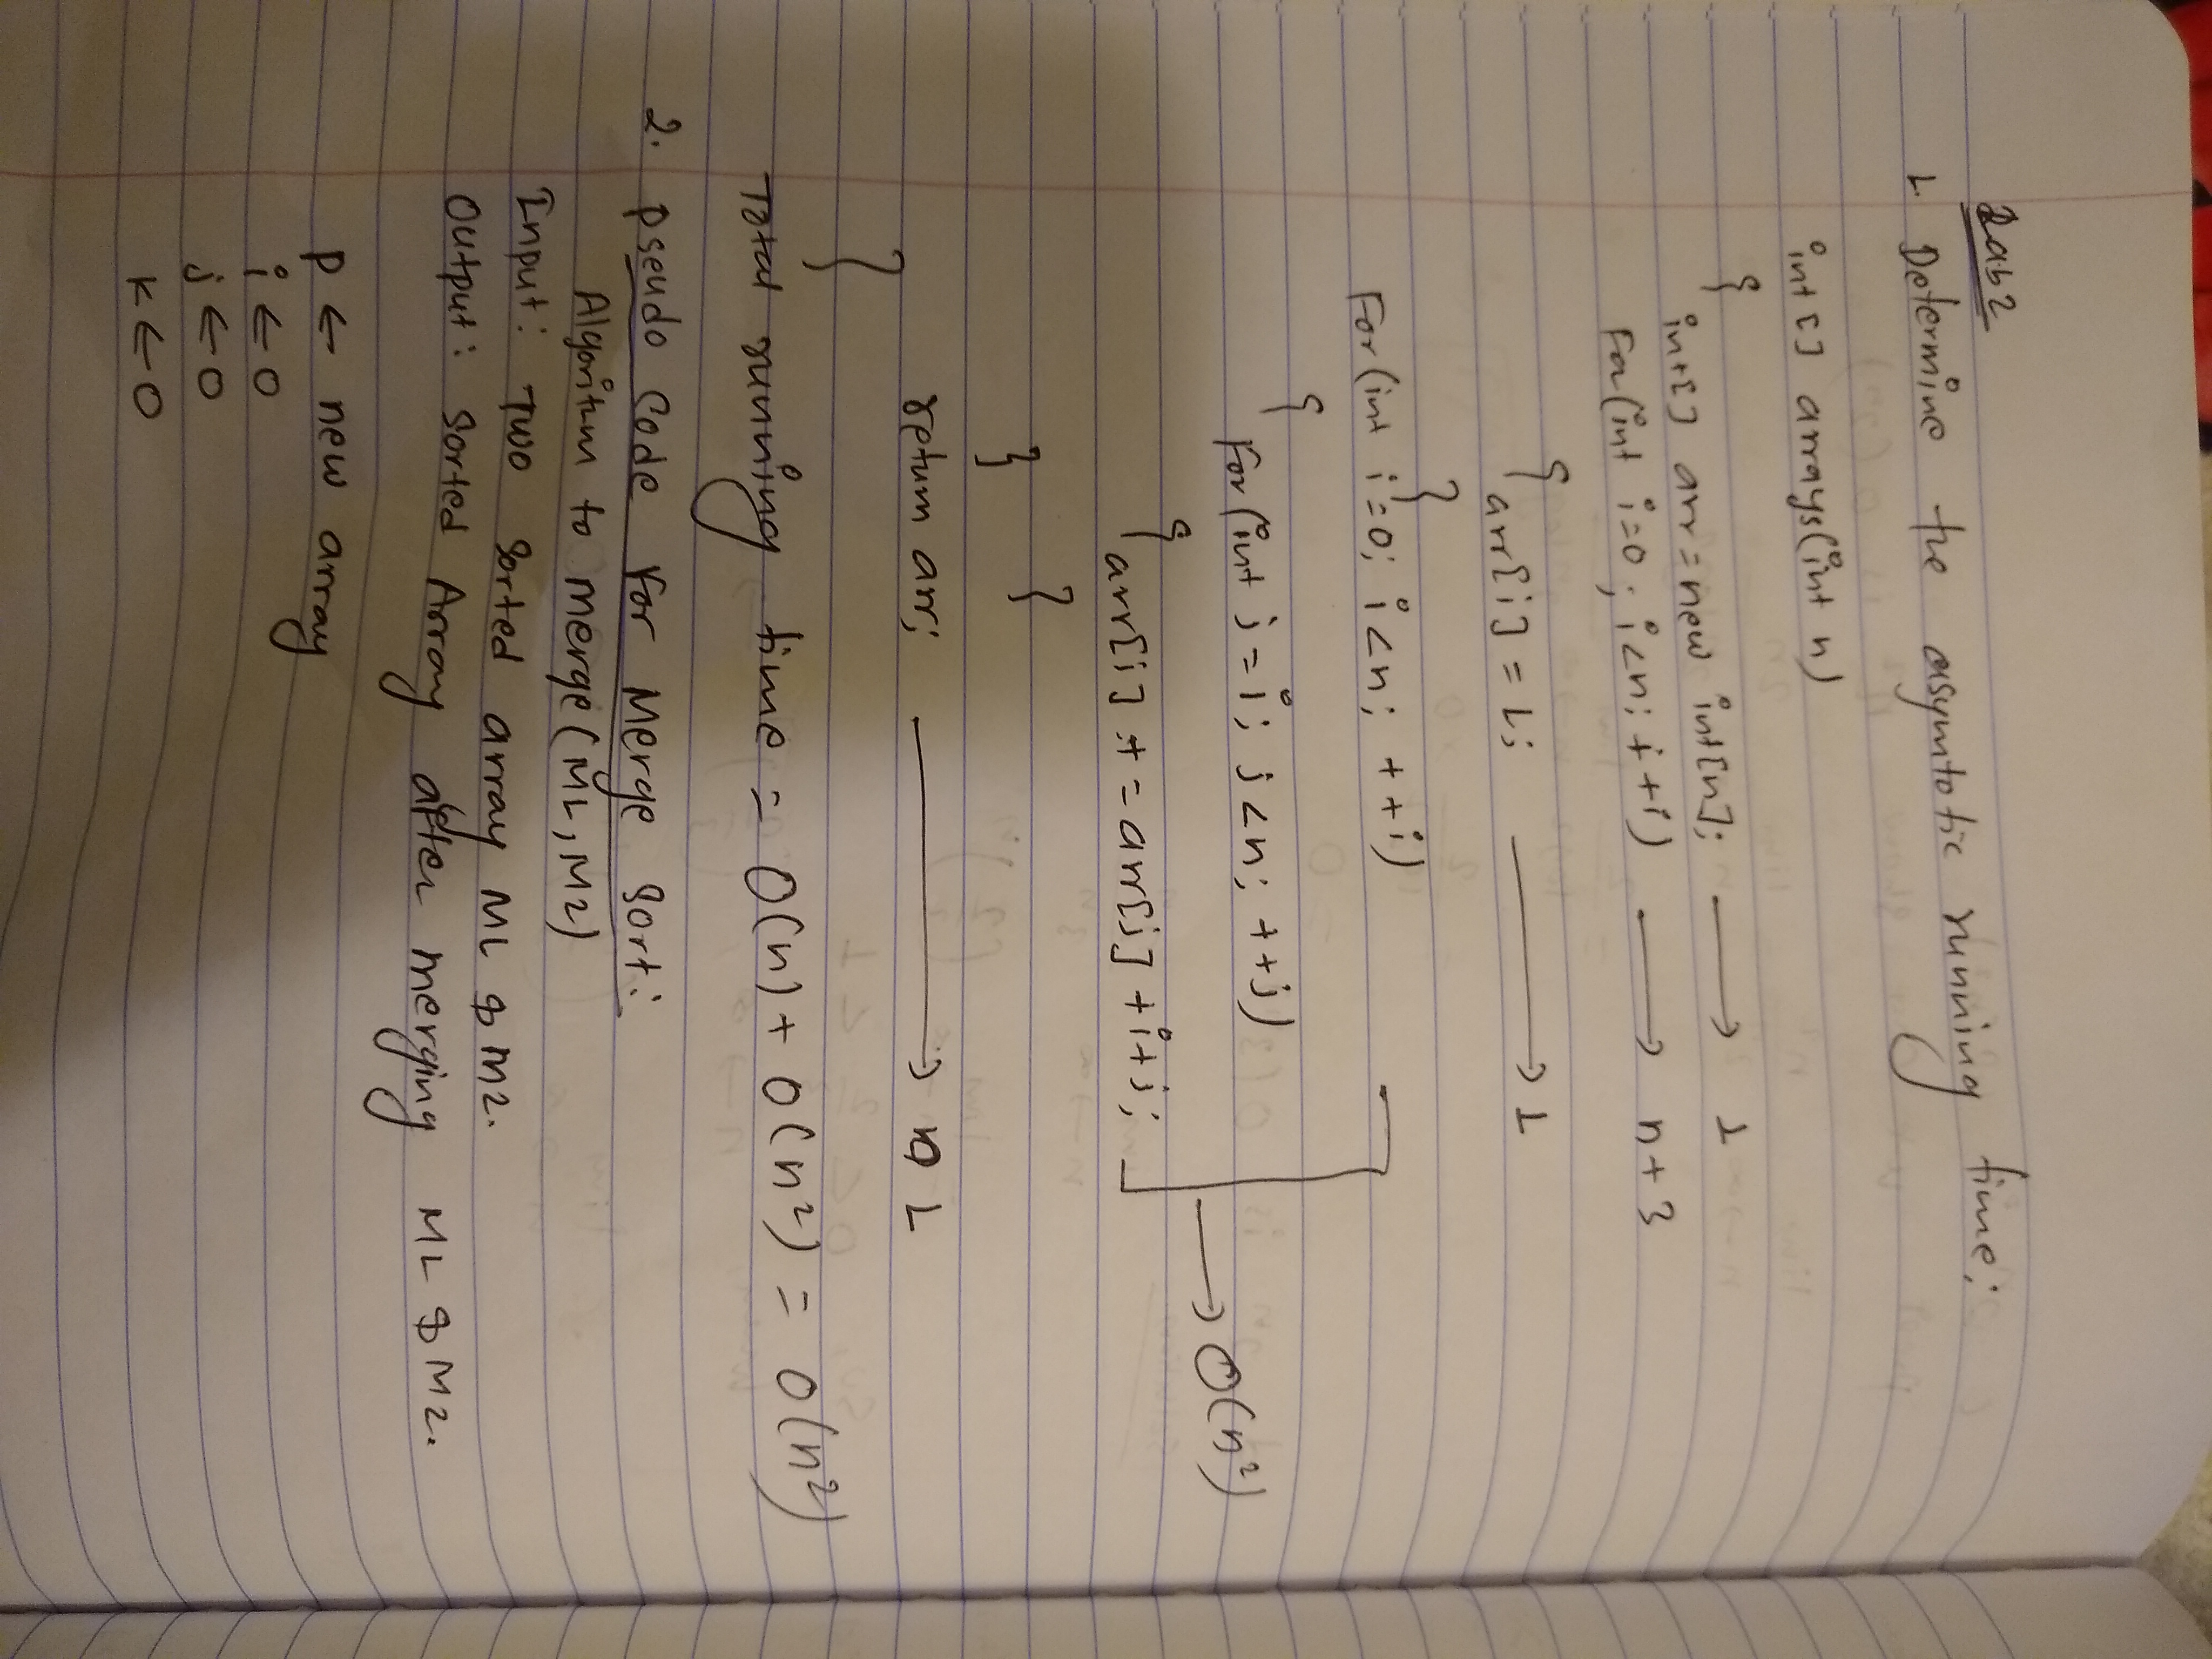 Lab 2
1. Determine the asymtotic running time:
int[] arrays(int n)
{
int[] arr = new int[n]; → 1
For(int i=0; i<n; ++i) → n+3
{
arr[i] = 1; → 1
}
For(int i=0; i<n; ++i)
{
For(int j=i; j<n; ++j)
→ O(n²)
{
arr[i] += arr[j] +i+j;
}
}
return arr; → 1
}
Total running time = O(n) + O(n²) = O(n²)
2. Pseudo Code For Merge Sort:
Algorithm to merge(M1, M2)
Input: Two Sorted array M1 & M2.
Output: Sorted Array after merging M1 & M2.
P ← new array
i ← 0
j ← 0
K ← 0